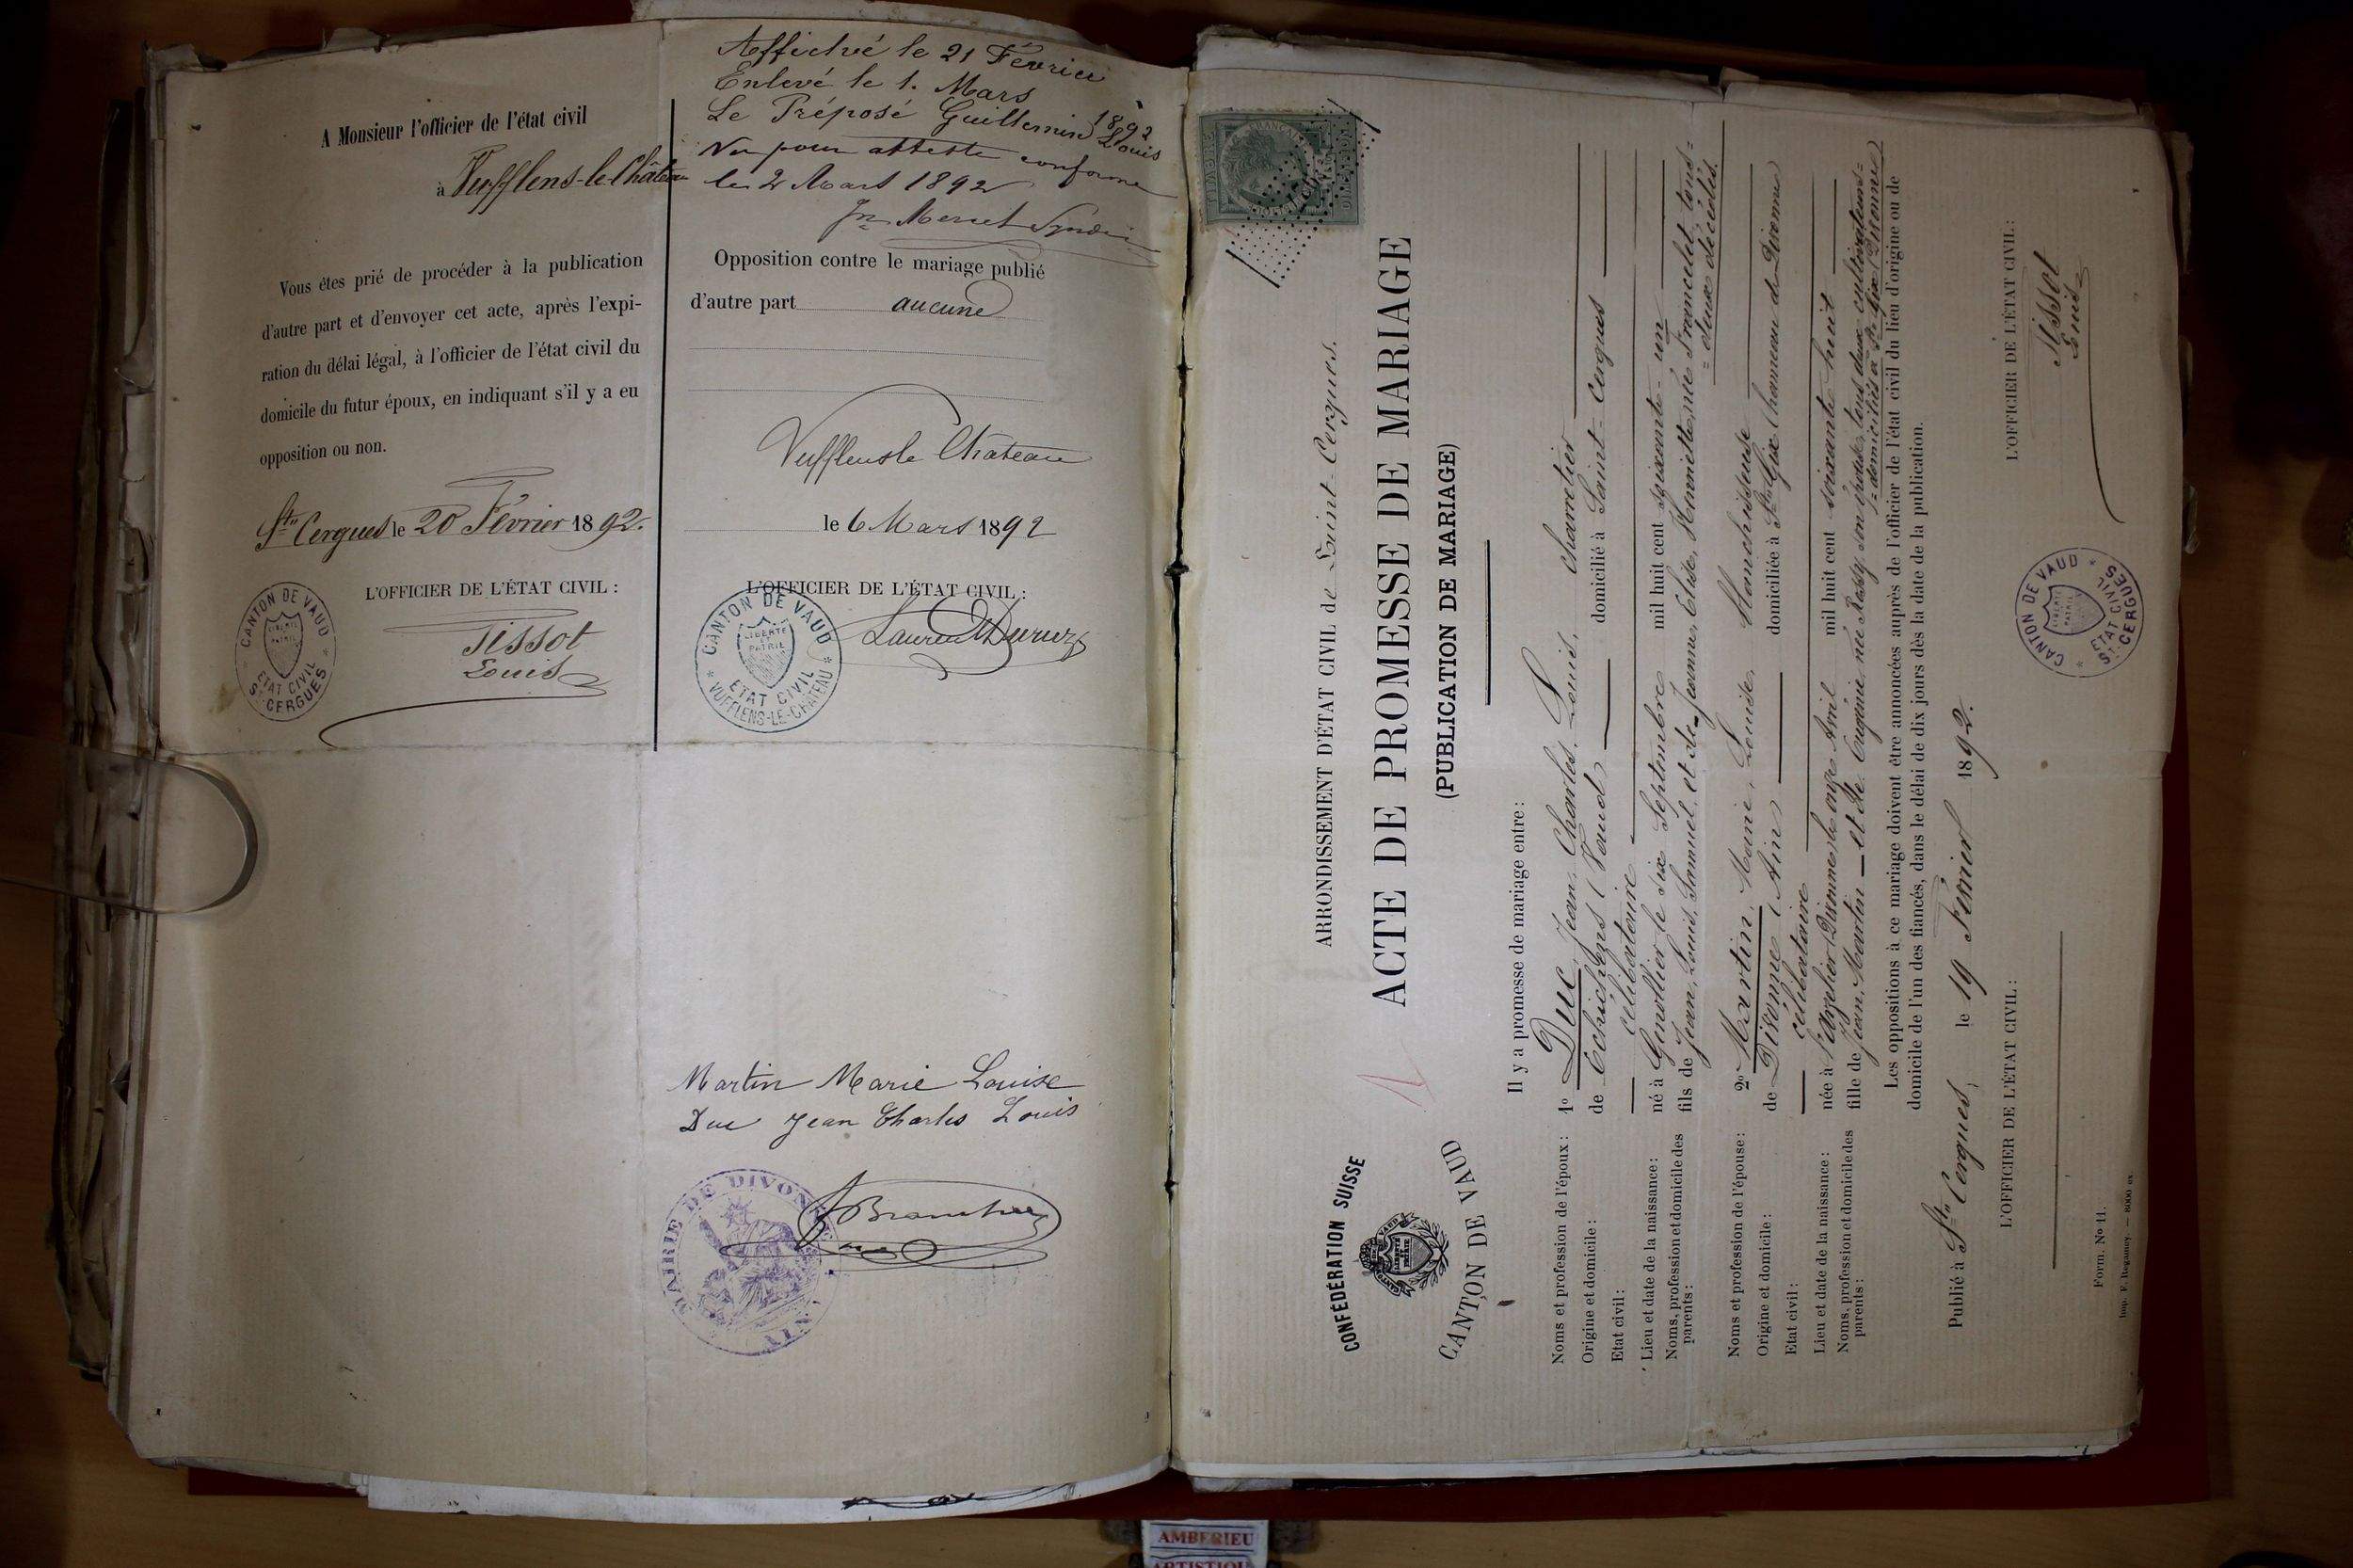 A Monsieur l'officier de l'état civil
à Vufflens-le-Château
Vous êtes prié de procéder à la publication
d'autre part et d'envoyer cet acte, après l'expi-
ration du délai légal, à l'officier de l'état civil du
domicile du futur époux, en indiquant s'il y a eu
opposition ou non.
St. Cergues le 20 Février 1892.
L'OFFICIER DE L'ÉTAT CIVIL :
Tissot
Louis
CANTON DE VAUD
LIBERTÉ ET PATRIE
ETAT CIVIL
ST. CERGUES
Affiché le 21 Février
Enlevé le 1. Mars
1892
Le Préposé Guillemin Louis
Vu pour atteste conforme
le 2 Mars 1892
Mercet Syndic
Opposition contre le mariage publié
d'autre part aucune
Vufflens le Château
le 6 Mars 1892
L'OFFICIER DE L'ÉTAT CIVIL :
Laurent Duruz
CANTON DE VAUD
LIBERTÉ ET PATRIE
ETAT CIVIL
VUFFLENS-LE-CHATEAU
Martin Marie Louise
Duc Jean Charles Louis
MAIRIE DE DIVONNE
AIN
CONFÉDÉRATION SUISSE
CANTON DE VAUD
ARRONDISSEMENT D'ÉTAT CIVIL de Saint-Cergues.
ACTE DE PROMESSE DE MARIAGE
(PUBLICATION DE MARIAGE)
Il y a promesse de mariage entre :
Noms et profession de l'époux : 1º Duc, Jean, Charles, Louis, charretier
Origine et domicile : de Echichens (Vaud) domicilié à Saint-Cergues
Etat civil : célibataire
Lieu et date de la naissance : né à Genollier le dix Septembre mil huit cent soixante-un
Noms, profession et domicile des parents : fils de Jean, Louis, Samuel, et de Jeanne, Elise, Henriette, née Francelet tous-
= deux décédés.
Noms et profession de l'épouse : 2º Martin, Marie, Louise, blanchisseuse
Origine et domicile : de Divonne (Ain) domiciliée à St. Gix hameau de Divonne
Etat civil : célibataire
Lieu et date de la naissance : née à Divonne, le onze Avril mil huit cent soixante huit
Noms, profession et domicile des parents : fille de Jean, Martin et de Eugénie, née Rossy, son épouse, tous deux cultivateurs=
= domiciliés à St. Gix (Divonne)
Les oppositions à ce mariage doivent être annoncées auprès de l'officier de l'état civil du lieu d'origine ou de
domicile de l'un des fiancés, dans le délai de dix jours dès la date de la publication.
Publié à St. Cergues, le 19 Février 1892.
L'OFFICIER DE L'ÉTAT CIVIL :
L'OFFICIER DE L'ÉTAT CIVIL :
Tissot
Louis
CANTON DE VAUD
ETAT CIVIL
ST. CERGUES
Form. Nº 11.
Imp. F. Regamey. — 8000 ex.
AMBERIEU